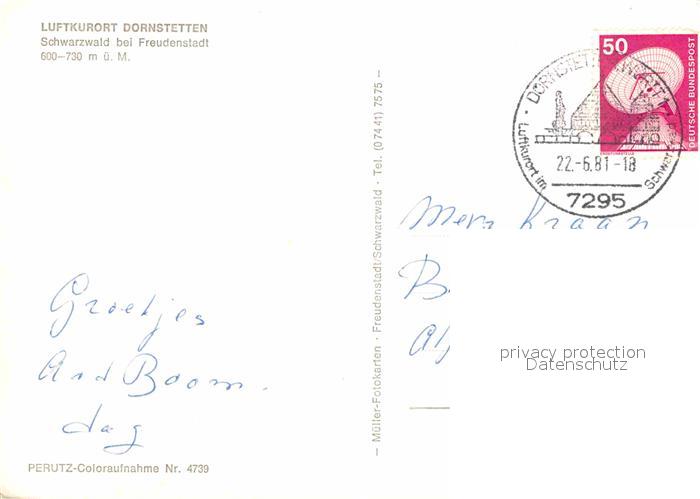 LUFTKURORT DORNSTETTEN
Schwarzwald bei Freudenstadt
600—730 m ü. M.
50
DEUTSCHE BUNDESPOST
DORNSTETTEN
Luftkurort im
22.-6.81-18
7295
— Müller-Fotokarten · Freudenstadt/Schwarzwald · Tel. (07441) 7575 —
Mevr Kraan
B.
Groetjes
And Boom.
dag
privacy protection
Datenschutz
PERUTZ-Coloraufnahme Nr. 4739